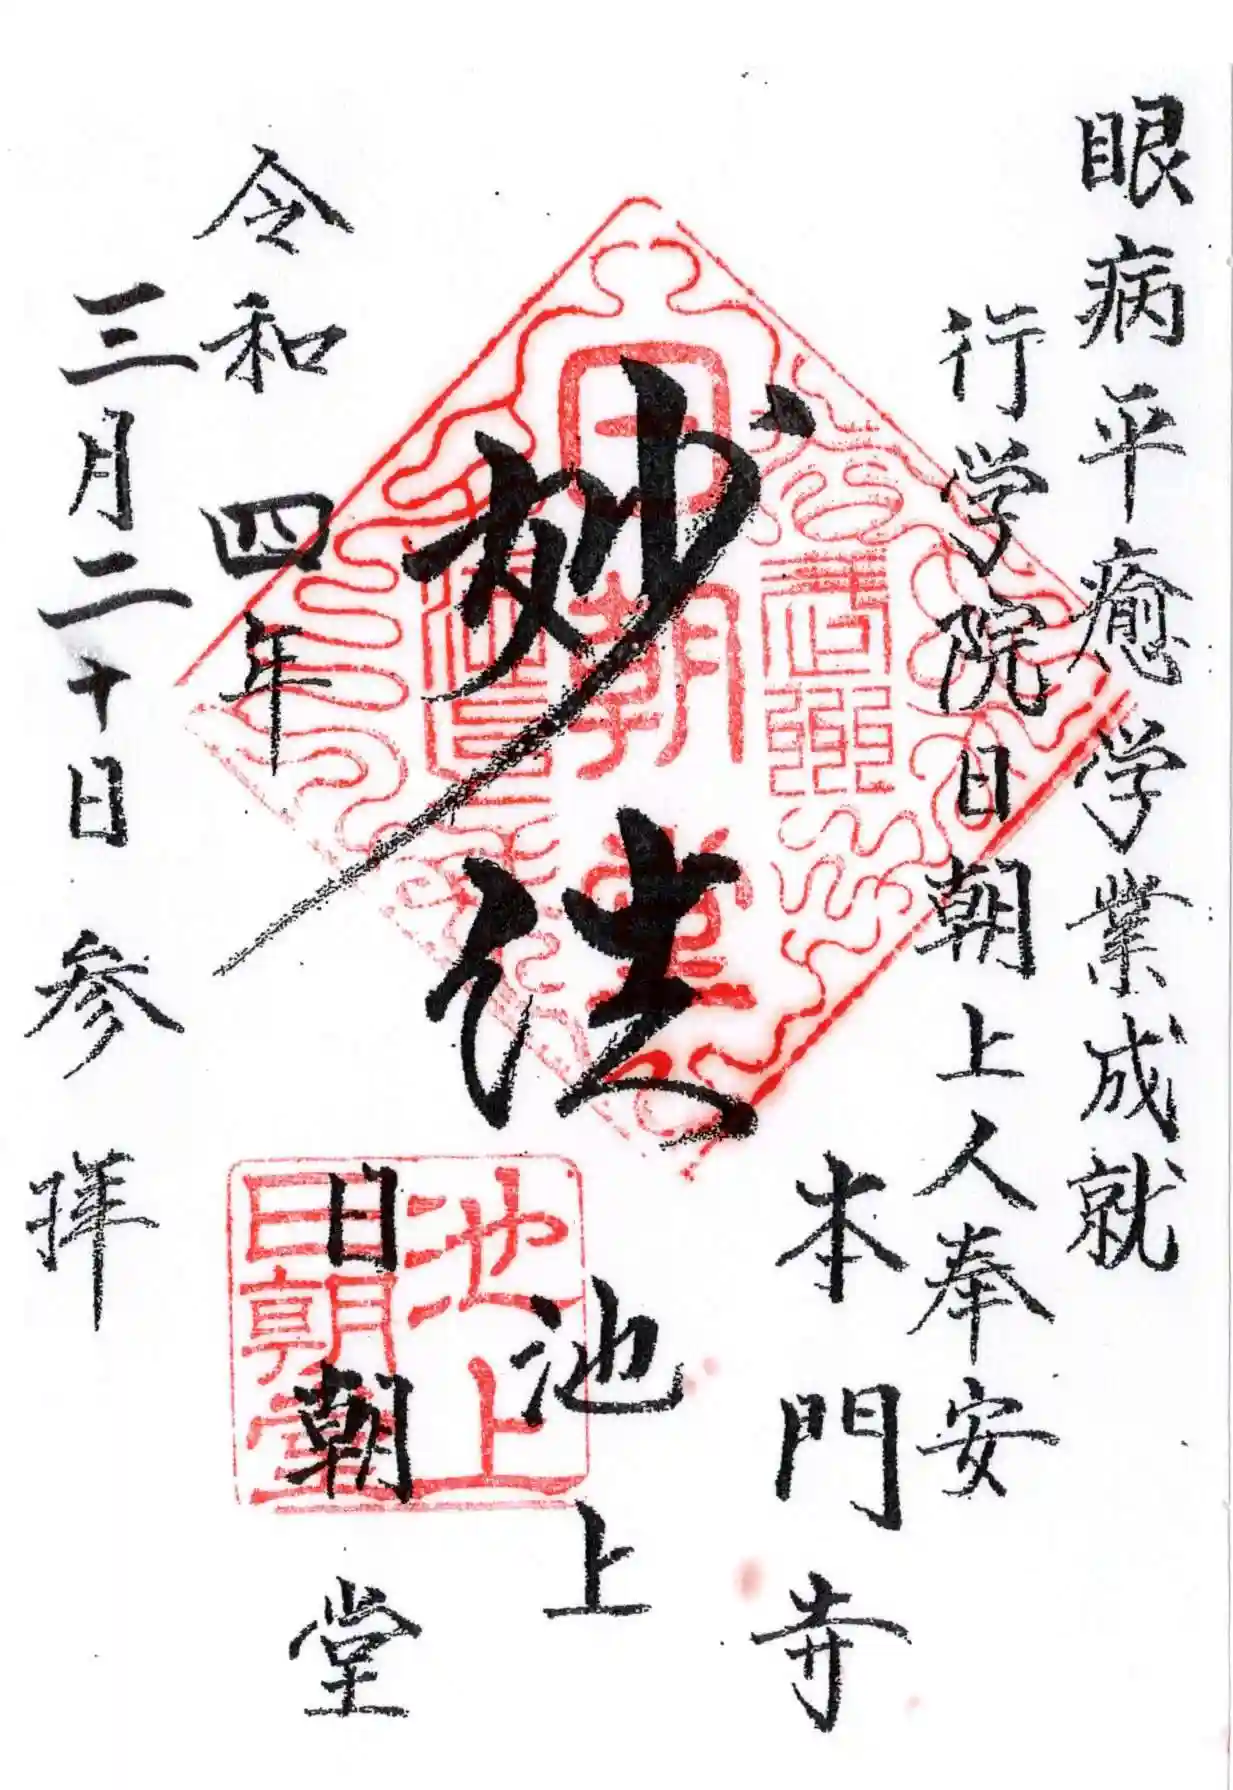 眼病平癒学業成就
行学院日朝上人奉安
本門寺
妙法
池上
日朝堂
令和四年
三月二十日参拝
日朝堂
池上
日朝堂